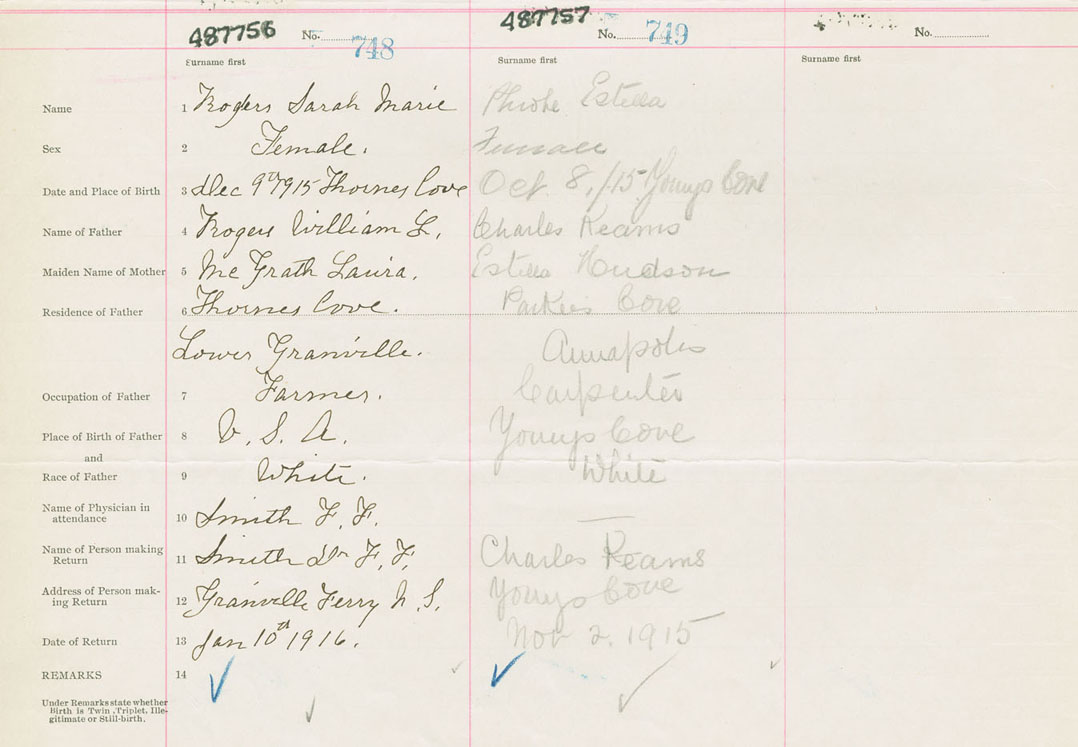 487756 No. 748
487757 No. 749
No.
Surname first
Surname first
Surname first
Name 1 Rogers Sarah Marie
Phiobe Estella
Sex 2 Female.
Female
Date and Place of Birth 3 Dec 9th 1915 Thornes Cove
Oct. 8, /15 Youngs Cove
Name of Father 4 Rogers William L.
Charles Reams
Maiden Name of Mother 5 Mc Grath Laura.
Estella Hudson
Residence of Father 6 Thornes Cove.
Parkers Cove
Lower Granville.
Annapolis
Occupation of Father 7 Farmer.
Carpenter
Place of Birth of Father 8 U. S. A.
Youngs Cove
and
Race of Father 9 White.
White
Name of Physician in
attendance 10 Smith F. F.
Name of Person making
Return 11 Smith Dr F. F.
Charles Reams
Address of Person mak-
ing Return 12 Granville Ferry N. S.
Youngs Cove
Date of Return 13 Jan 10th 1916.
Nov 2. 1915
REMARKS 14
Under Remarks state whether
Birth is Twin, Triplet, Ille-
gitimate or Still-birth.